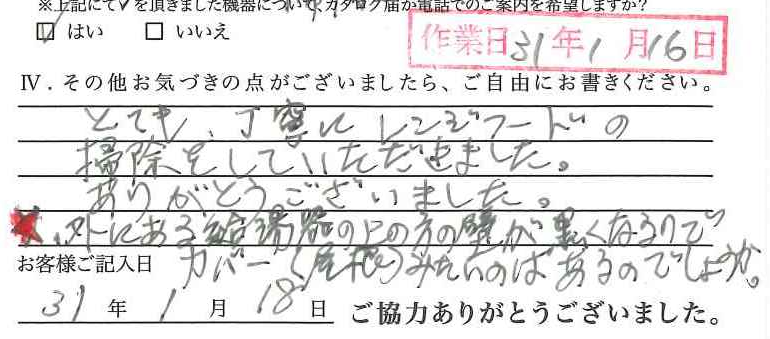 ※上記にて✓を頂きました機器についてカタログ届か電話でのご案内を希望しますか?
☑ はい　□ いいえ
作業日 31年1月16日
Ⅳ．その他お気づきの点がございましたら、ご自由にお書きください。
とても、丁寧に レンジフードの
掃除をしていただきました。
ありがとうございました。
★．外にある給湯器の上の方の壁が黒くなるので
カバー（屋根）みたいのはあるのでしょうか。
お客様ご記入日
31年1月18日
ご協力ありがとうございました。